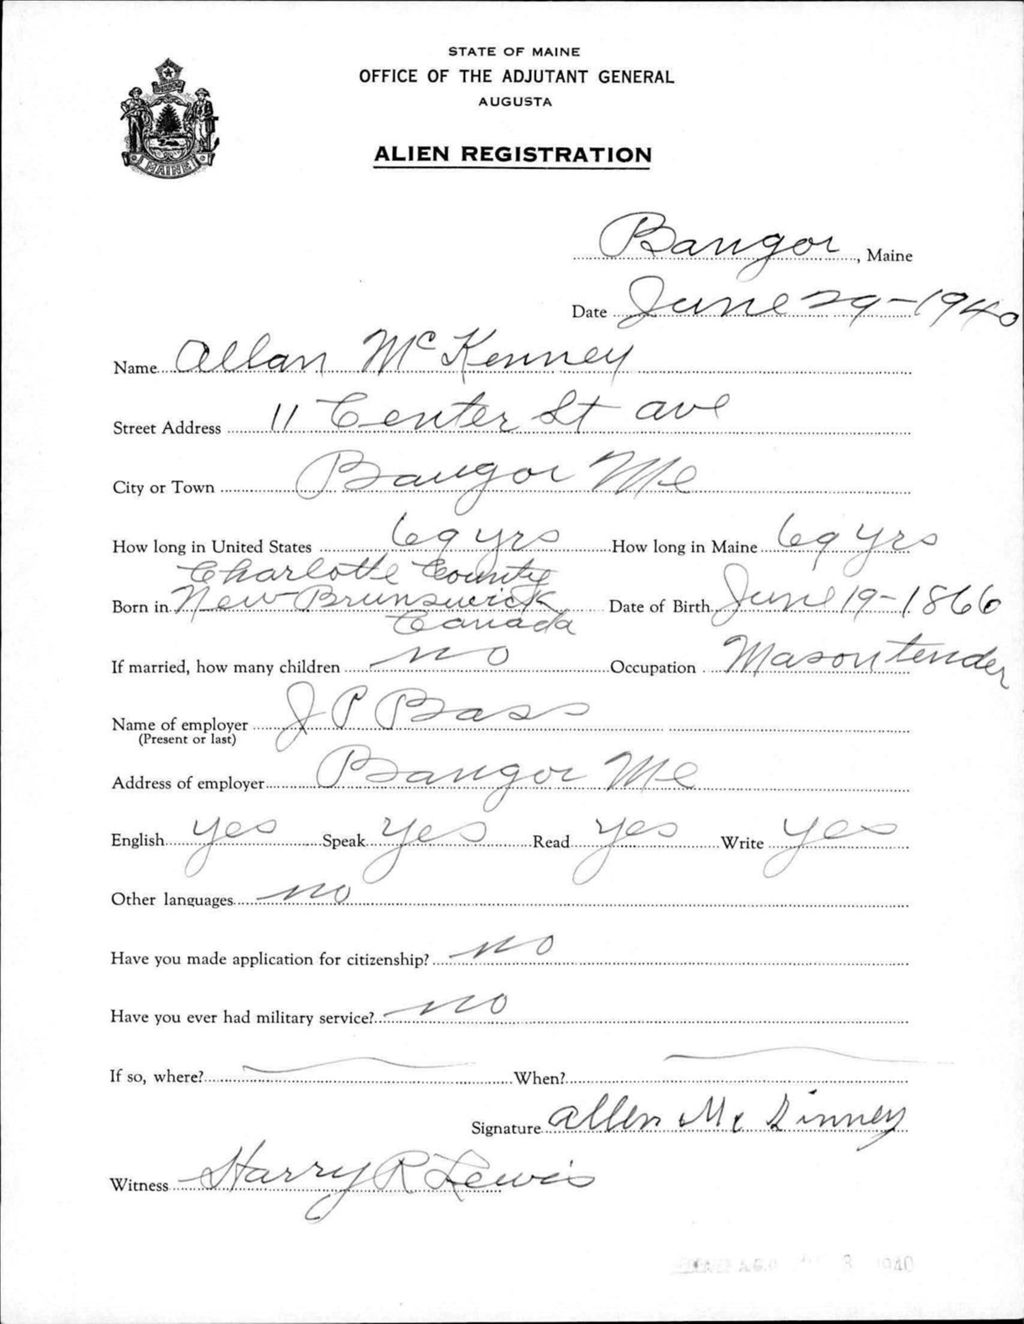 STATE OF MAINE
OFFICE OF THE ADJUTANT GENERAL
AUGUSTA
ALIEN REGISTRATION
MAINE
Bangor, Maine
Date June 29-1940
Name Allan McKenney
Street Address 11 Center St ave
City or Town Bangor Me
How long in United States 69 yrs How long in Maine 69 yrs
Charlotte County
Born in New Brunswick Date of Birth June 19-1866
Canada
If married, how many children no Occupation Mason tender
Name of employer J P Bass
(Present or last)
Address of employer Bangor Me
English yes Speak yes Read yes Write yes
Other languages no
Have you made application for citizenship? no
Have you ever had military service? no
If so, where? When?
Signature allen Mc Kinney
Witness Harry R Lewis
A.G.O. 8 1940